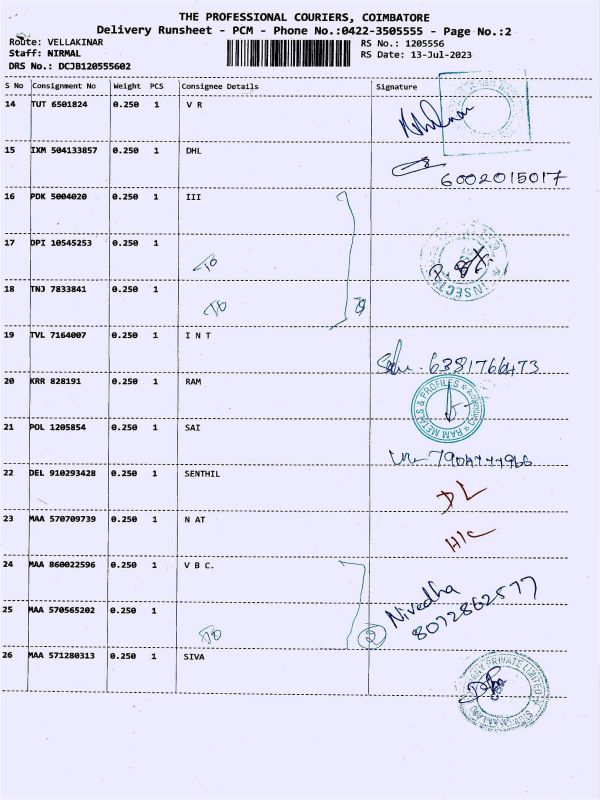 THE PROFESSIONAL COURIERS, COIMBATORE
Delivery Runsheet - PCM - Phone No.:0422-3505555 - Page No.:2
Route: VELLAKINAR
RS No.: 1205556
Staff: NIRMAL
RS Date: 13-Jul-2023
DRS No.: DCJB120555602
S No Consignment No Weight PCS Consignee Details Signature
14 TUT 6501824 0.250 1 V R
15 IXM 504133857 0.250 1 DHL
6002015017
16 PDK 5004020 0.250 1 III
17 DPI 10545253 0.250 1
To
18 TNJ 7833841 0.250 1
To
19 TVL 7164007 0.250 1 I N T
6381766473
20 KRR 828191 0.250 1 RAM
RAM METALS & PROFILES
21 POL 1205854 0.250 1 SAI
22 DEL 910293428 0.250 1 SENTHIL
DL
23 MAA 570709739 0.250 1 N AT
H/C
24 MAA 860022596 0.250 1 V B C.
Nivedha
8072862577
25 MAA 570565202 0.250 1
To 2
26 MAA 571280313 0.250 1 SIVA
PRIVATE LIMITED